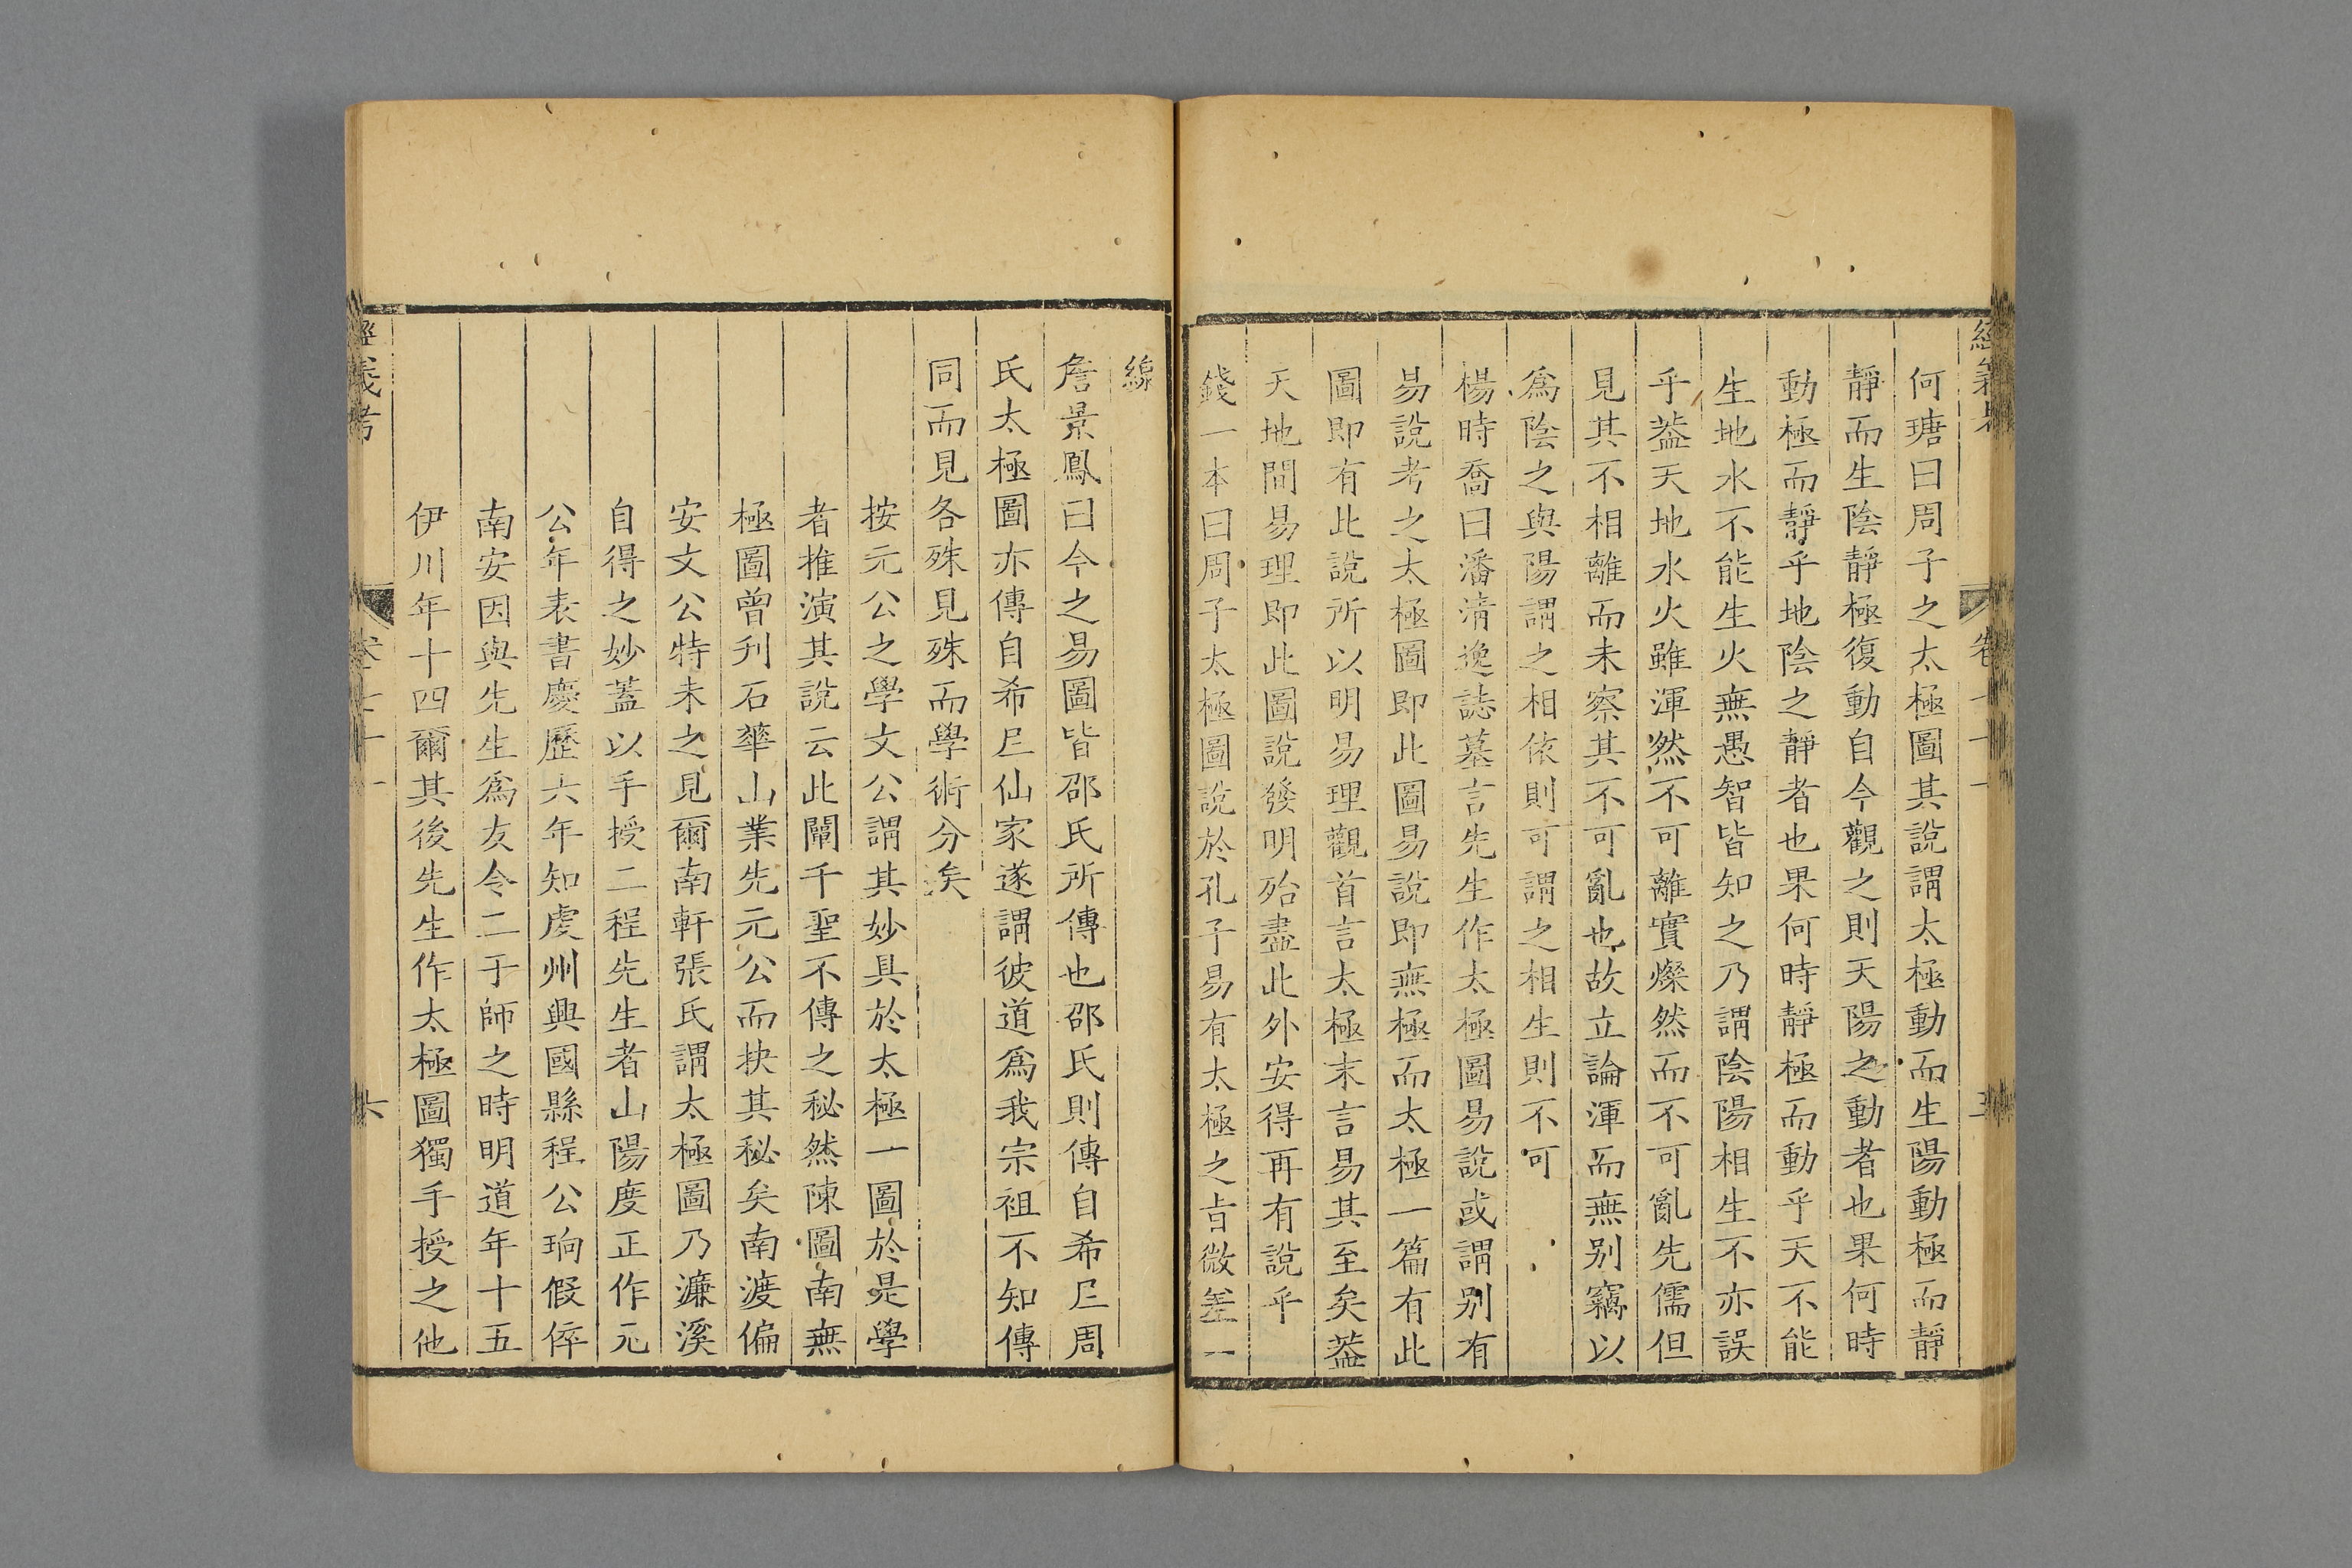 何瑭曰周子之太極圖其說謂太極動而生陽動極而靜
靜而生陰靜極復動自今觀之則天陽之動者也果何時
動極而靜乎地陰之靜者也果何時靜極而動乎天不能
生地水不能生火無愚智皆知之乃謂陰陽相生不亦誤
乎葢天地水火雖渾然不可離實燦然而不可亂先儒但
見其不相離而未察其不可亂也故立論渾而無别竊以
爲陰之與陽謂之相依則可謂之相生則不可
楊時喬曰潘清逸誌墓言先生作太極圖易說或謂别有
易說考之太極圖即此圖易說即無極而太極一篇有此
圖即有此說所以明易理觀首言太極末言易其至矣葢
天地間易理即此圖說發明殆盡此外安得再有說乎
錢一本曰周子太極圖說於孔子易有太極之旨微差一
線
詹景鳳曰今之易圖皆邵氏所傳也邵氏則傳自希𡰥周
氏太極圖亦傳自希𡰥仙家遂謂彼道爲我宗祖不知傳
同而見各殊見殊而學術分矣
按元公之學文公謂其妙具於太極一圖於是學
者推演其說云此闡千聖不傳之秘然陳圖南無
極圖曾刋石華山業先元公而抉其秘矣南渡偏
安文公特未之見爾南軒張氏謂太極圖乃濂溪
自得之妙蓋以手授二程先生者山陽度正作元
公年表書慶歷六年知虔州興國縣程公珦假倅
南安因與先生爲友令二子師之時明道年十五
伊川年十四爾其後先生作太極圖獨手授之他
經義考
卷七十一
六